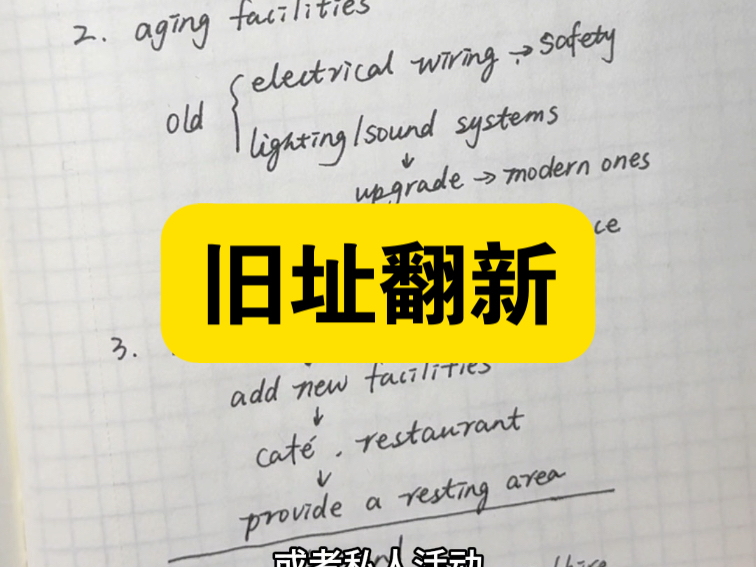 2. aging facilities
old { electrical wiring → safety
lighting/sound systems
↓
upgrade → modern ones
ce
旧址翻新
3.
add new facilities
↓
café . restaurant
↓
provide a resting area
或者私人活动